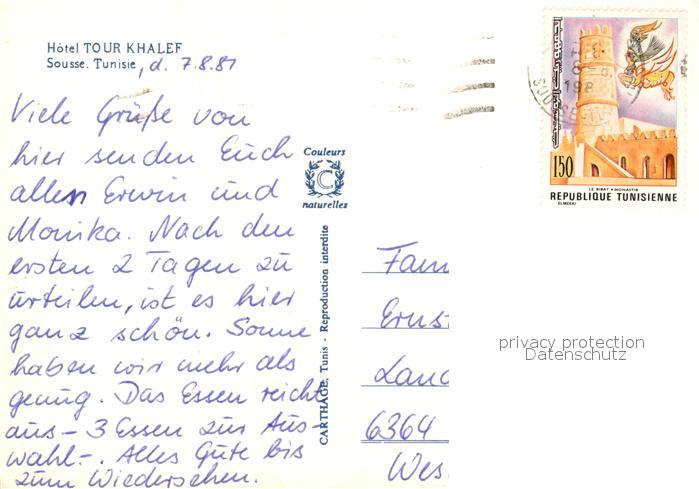 Hôtel TOUR KHALEF
Sousse. Tunisie, d. 7.8.81
Viele Grüße von
hier senden Euch
allen Erwin und
Monika. Nach den
ersten 2 Tagen zu
urteilen, ist es hier
ganz schön. Sonne
haben wir mehr als
genug. Das Essen reicht
aus - 3 Essen zur Aus-
wahl -. Alles Gute bis
zum Wiedersehen.
Couleurs
C
naturelles
CARTHAGE, Tunis - Reproduction interdite
150
LE RIBAT • MONASTIR
REPUBLIQUE TUNISIENNE
ELMEKKI
Fam
Erns
Land
6364
Wes
privacy protection
Datenschutz